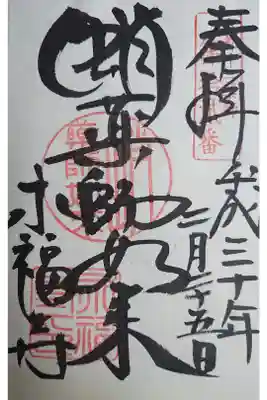 奉拝
平成三十年
二月二十五日
蛸薬師如来
永福寺